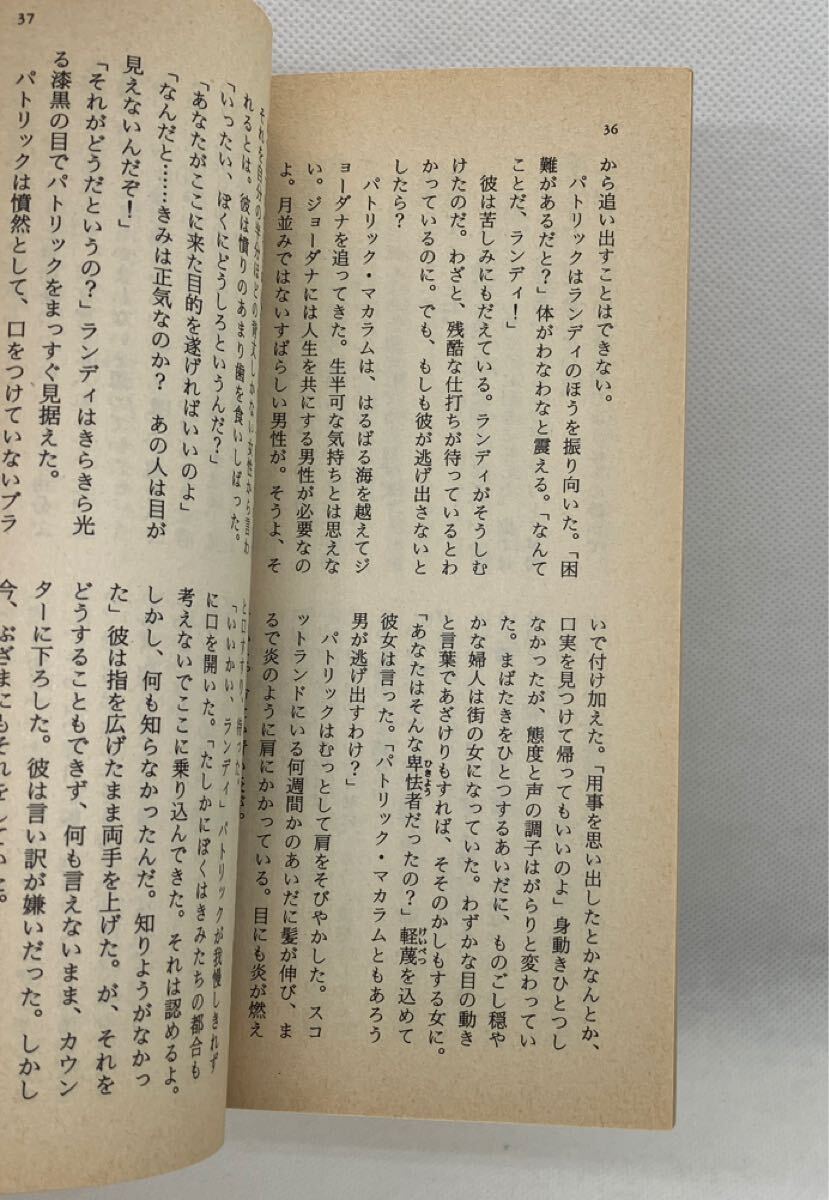 36
から追い出すことはできない。
パトリックはランディのほうを振り向いた。「困
難があるだと？」体がわなわなと震える。「なんて
ことだ、ランディ！」
彼は苦しみにもだえている。ランディがそうしむ
けたのだ。わざと、残酷な仕打ちが待っているとわ
かっているのに。でも、もしも彼が逃げ出さないと
したら？
パトリック・マカラムは、はるばる海を越えてジ
ョーダナを追ってきた。生半可な気持ちとは思えな
い。ジョーダナには人生を共にする男性が必要なの
よ。月並みではないすばらしい男性が。そうよ、そ
いで付け加えた。「用事を思い出したとかなんとか、
口実を見つけて帰ってもいいのよ」身動きひとつし
なかったが、態度と声の調子はがらりと変わってい
た。まばたきをひとつするあいだに、ものごし穏や
かな婦人は街の女になっていた。わずかな目の動き
と言葉であざけりもすれば、そそのかしもする女に。
「あなたはそんな卑怯者だったの？」軽蔑を込めて
ひきょう
けいべつ
彼女は言った。「パトリック・マカラムともあろう
男が逃げ出すわけ？」
パトリックはむっとして肩をそびやかした。スコ
ットランドにいる何週間かのあいだに髪が伸び、ま
るで炎のように肩にかかっている。目にも炎が燃え
37
それを自分の半分ほどの
しかない女性から言わ
れるとは。彼は憤りのあまり歯を食いしばった。
「いったい、ぼくにどうしろというんだ？」
「あなたがここに来た目的を遂げればいいのよ」
「なんだと……きみは正気なのか？　あの人は目が
見えないんだぞ！」
「それがどうだというの？」ランディはきらきら光
る漆黒の目でパトリックをまっすぐ見据えた。
パトリックは憤然として、口をつけていないブラ
「いいかい、ランディ」パトリックが我慢しきれず
に口を開いた。「たしかにぼくはきみたちの都合も
考えないでここに乗り込んできた。それは認めるよ。
しかし、何も知らなかったんだ。知りようがなかっ
た」彼は指を広げたまま両手を上げた。が、それを
どうすることもできず、何も言えないまま、カウン
ターに下ろした。彼は言い訳が嫌いだった。しかし
今、ぶざまにもそれをしていた。